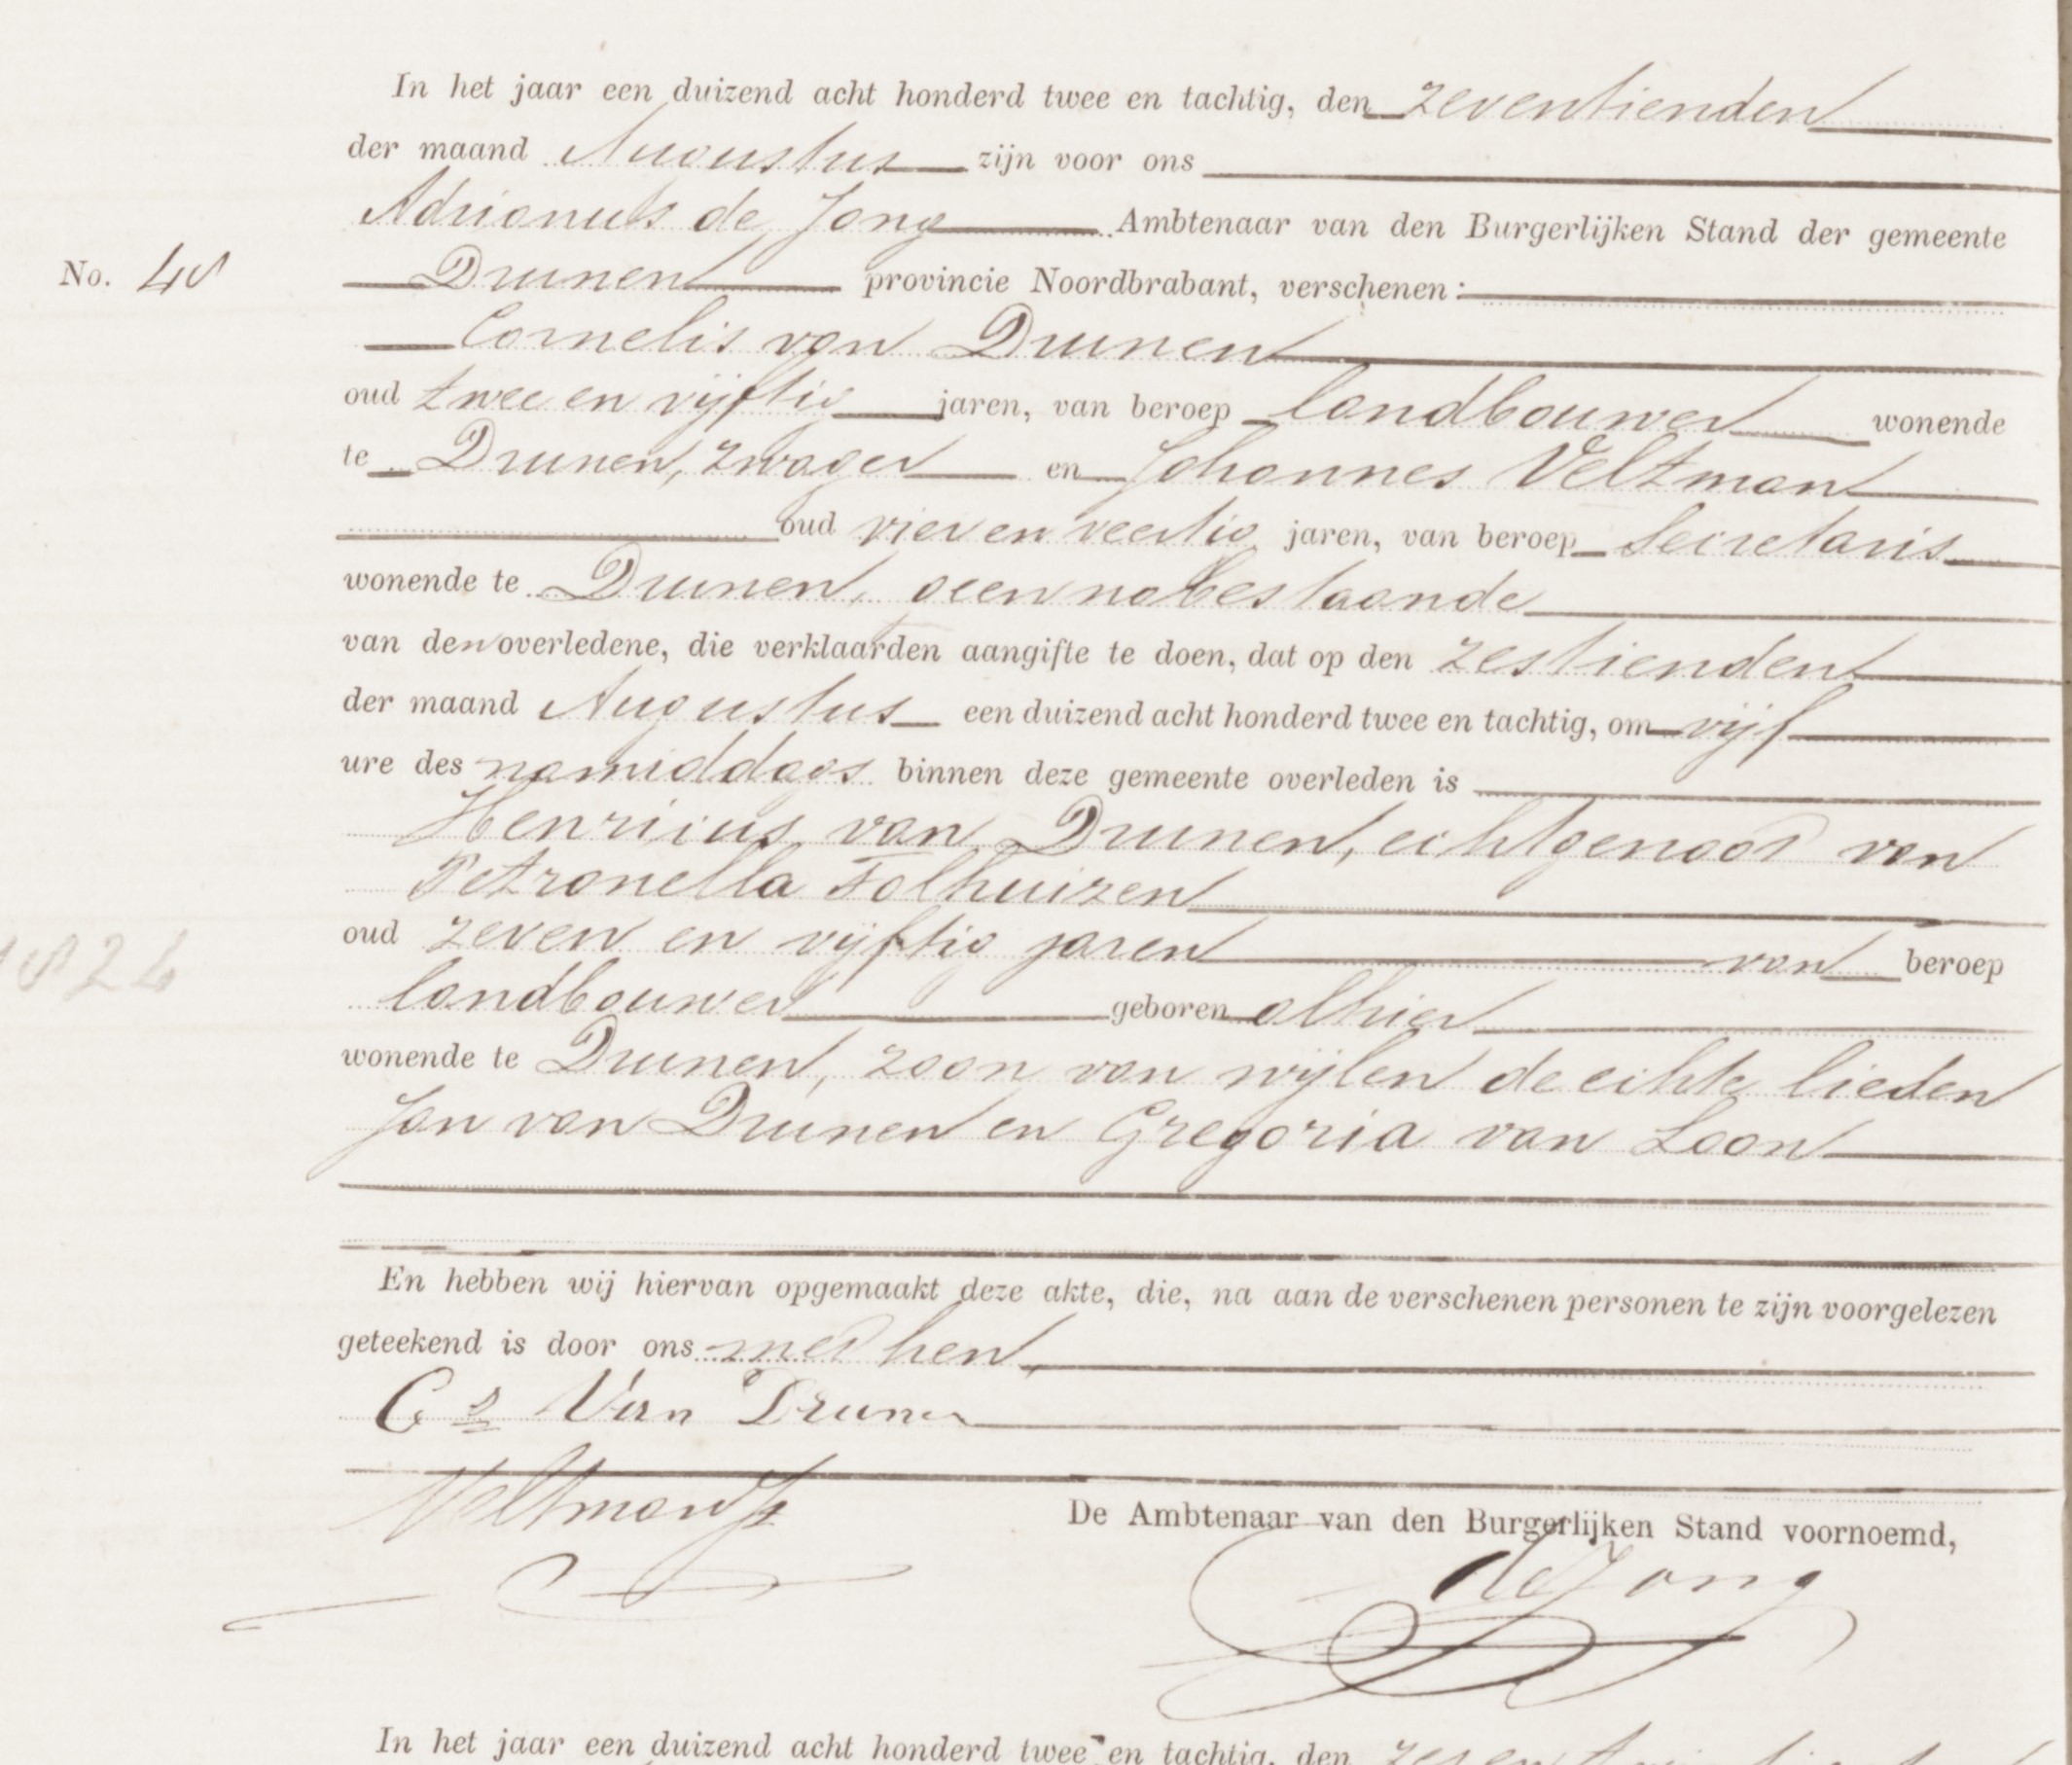 In het jaar een duizend acht honderd twee en tachtig, den zeventienden
der maand Augustus zijn voor ons
Adrianus de Jong Ambtenaar van den Burgerlijken Stand der gemeente
No. 48 Drunen provincie Noordbrabant, verschenen:
Cornelis van Drunen
oud twee en vijftig jaren, van beroep landbouwer wonende
te Drunen, zwager en Johannes Veltman
oud vier en veertig jaren, van beroep Secretaris
wonende te Drunen, geen nabestaande
van den overledene, die verklaarden aangifte te doen, dat op den zestienden
der maand Augustus een duizend acht honderd twee en tachtig, om vijf
ure des namiddags binnen deze gemeente overleden is
Henricus van Drunen, echtgenoot van
Petronella Folhuizen
oud zeven en vijftig jaren van beroep
landbouwer geboren alhier
wonende te Drunen, zoon van wijlen de echte lieden
Jan van Drunen en Gregoria van Loon
En hebben wij hiervan opgemaakt deze akte, die, na aan de verschenen personen te zijn voorgelezen
geteekend is door ons met hen,
Cs Van Drunen
Veltman
De Ambtenaar van den Burgerlijken Stand voornoemd,
de Jong
In het jaar een duizend acht honderd twee en tachtig, den